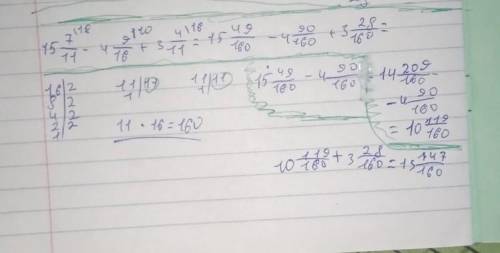 15 7/11 - 4 9/16 + 3 4/11 = 15 49/160 - 4 90/160 + 3 28/160 =
16|2
8|2
4|2
2|2
1|
11|11
1|
11|11
1|
11 · 16 = 160
15 49/160 - 4 90/160 = 14 209/160 - 4 90/160 = 10 119/160
10 119/160 + 3 28/160 = 13 147/160